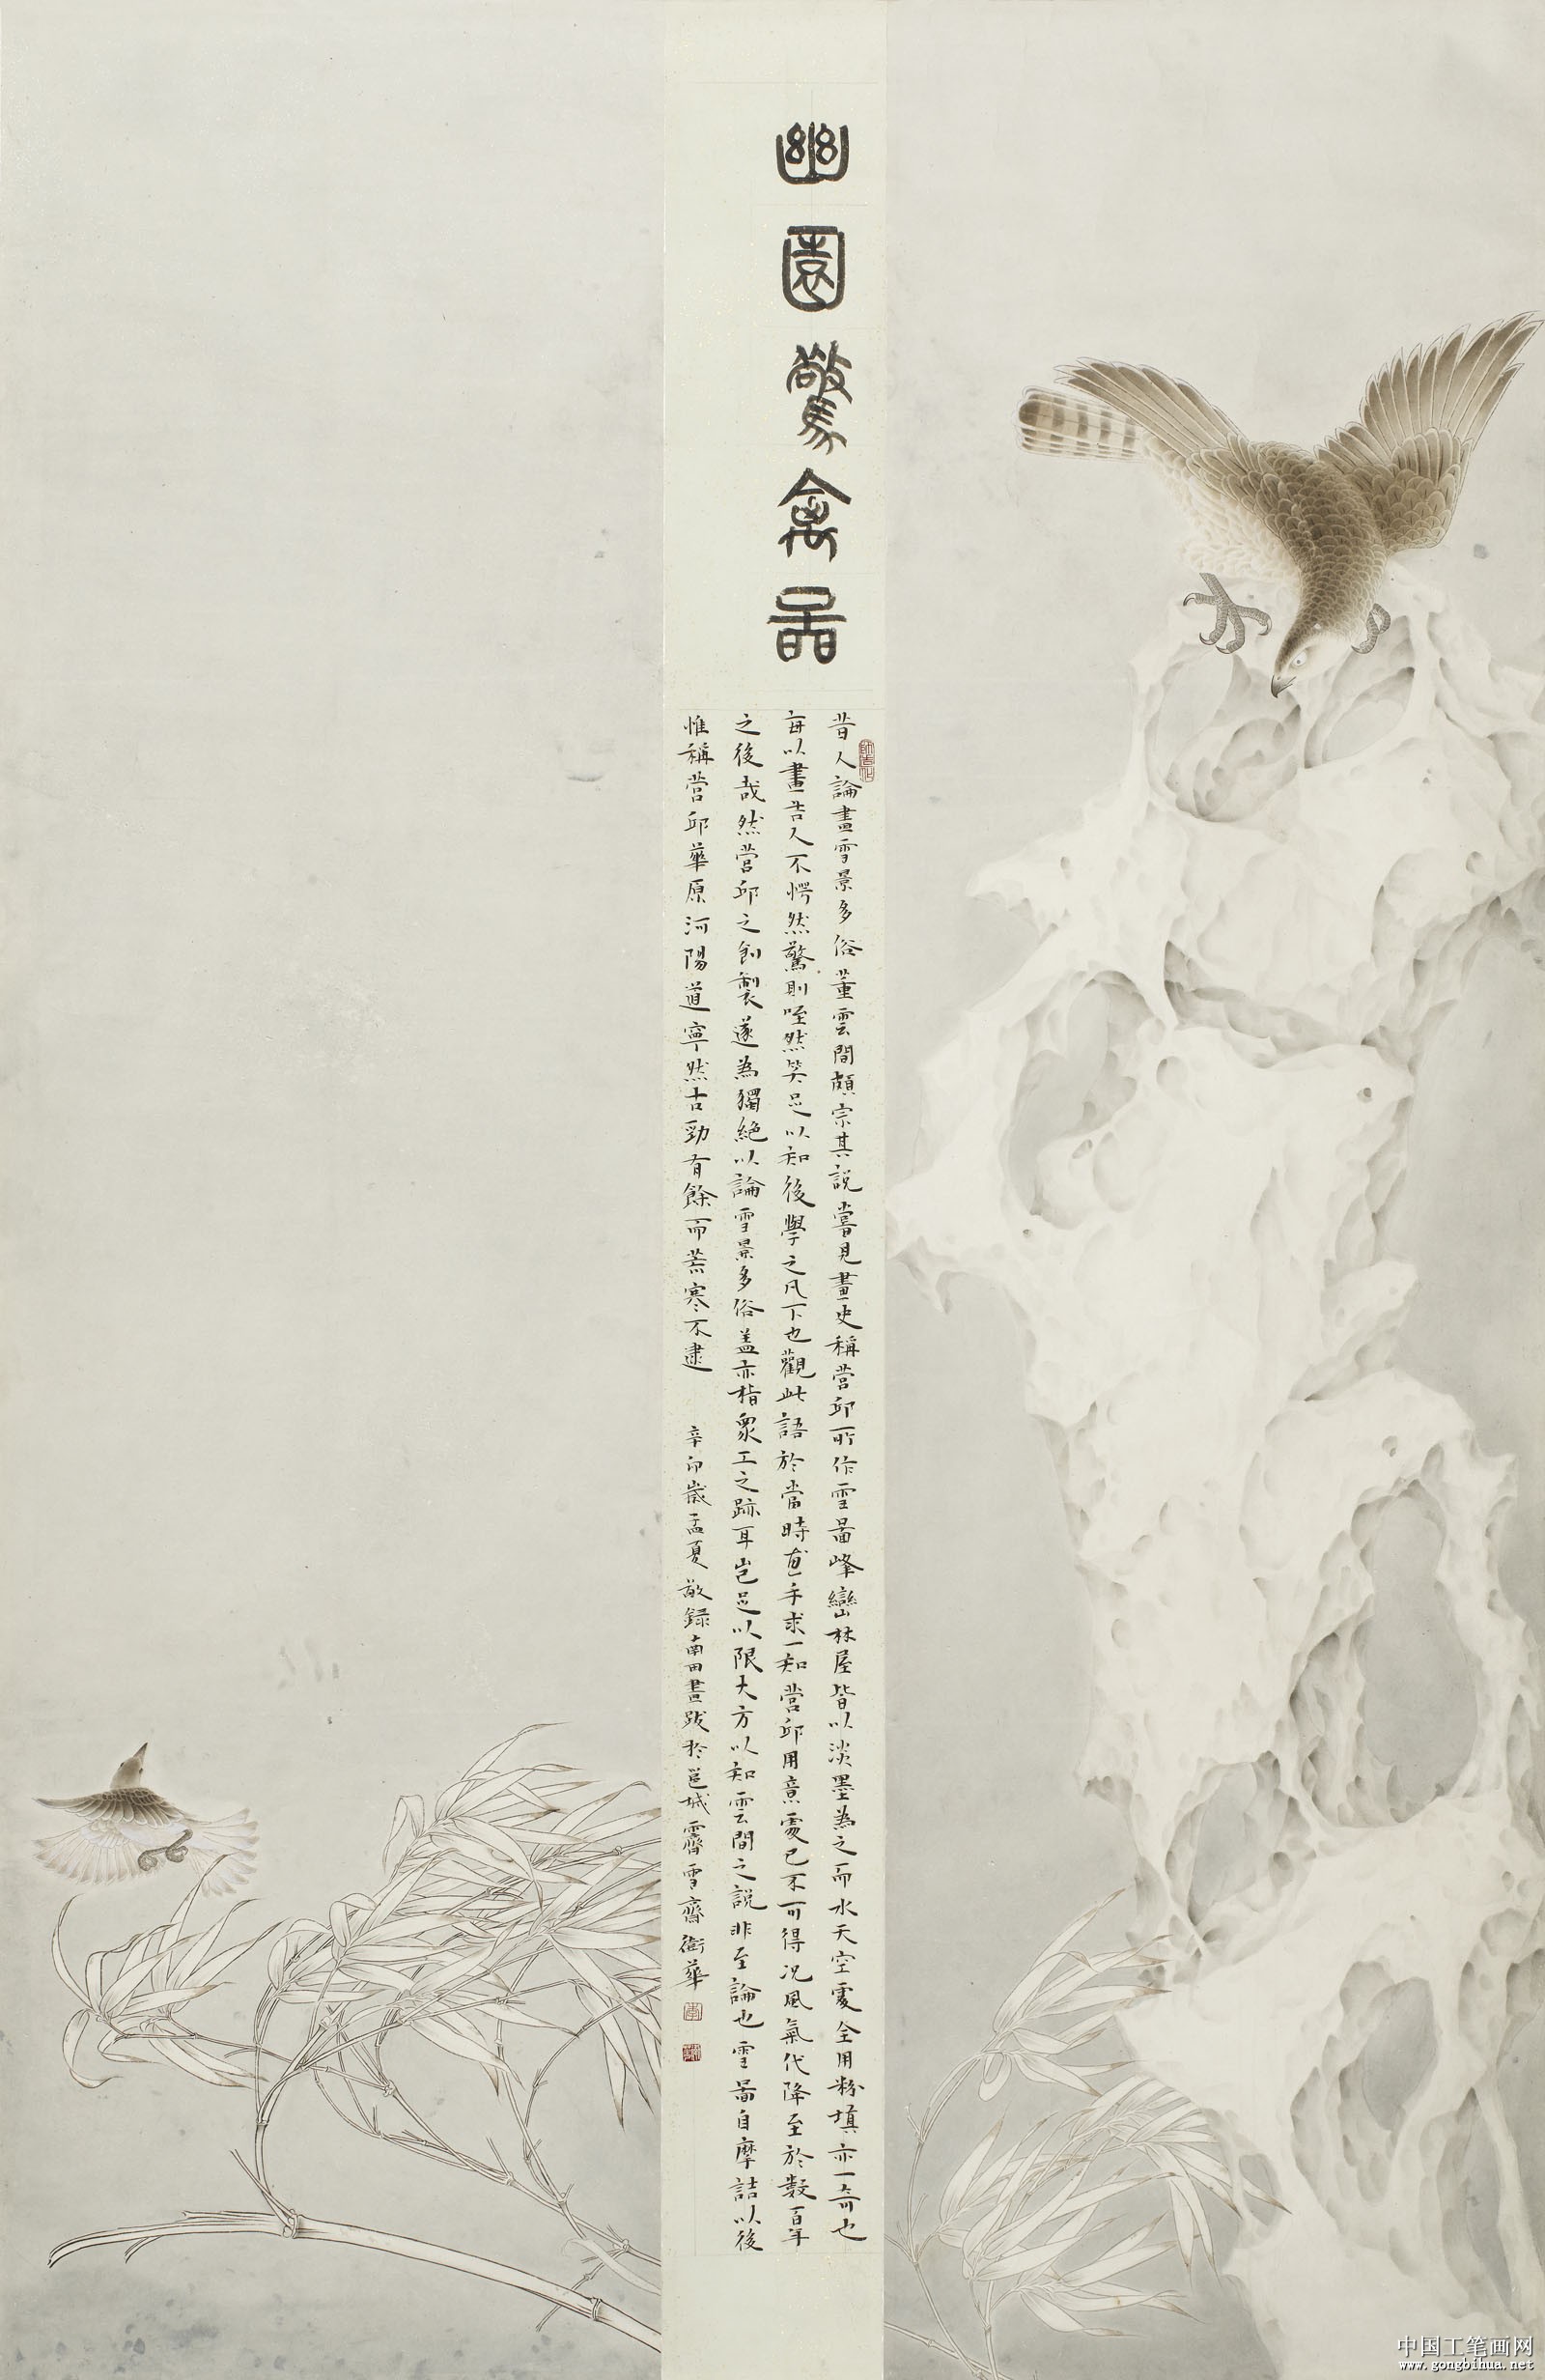 幽園驚禽啚
昔人論畫雪景多俗董雲間頗宗其說嘗見畫史稱營邱所作雪啚峰巒林屋皆以淡墨為之而水天空處全用粉填亦一奇也
每以畫告人不愕然驚則咥然笑足以知後學之凡下也觀此語於當時畫手求一知營邱用意處已不可得況風氣代降至於數百年
之後哉然營邱之創製遂為獨絕以論雪景多俗蓋亦指衆工之跡耳豈足以限大方以知雲間之說非至論也雪啚自摩詰以後
惟稱營邱華原河陽道寧然古勁有餘而荒寒不逮
辛卯歲孟夏敬録南田畫跋於邕城霽雪齋衛華
中国工笔画网
www.gongbihua.net